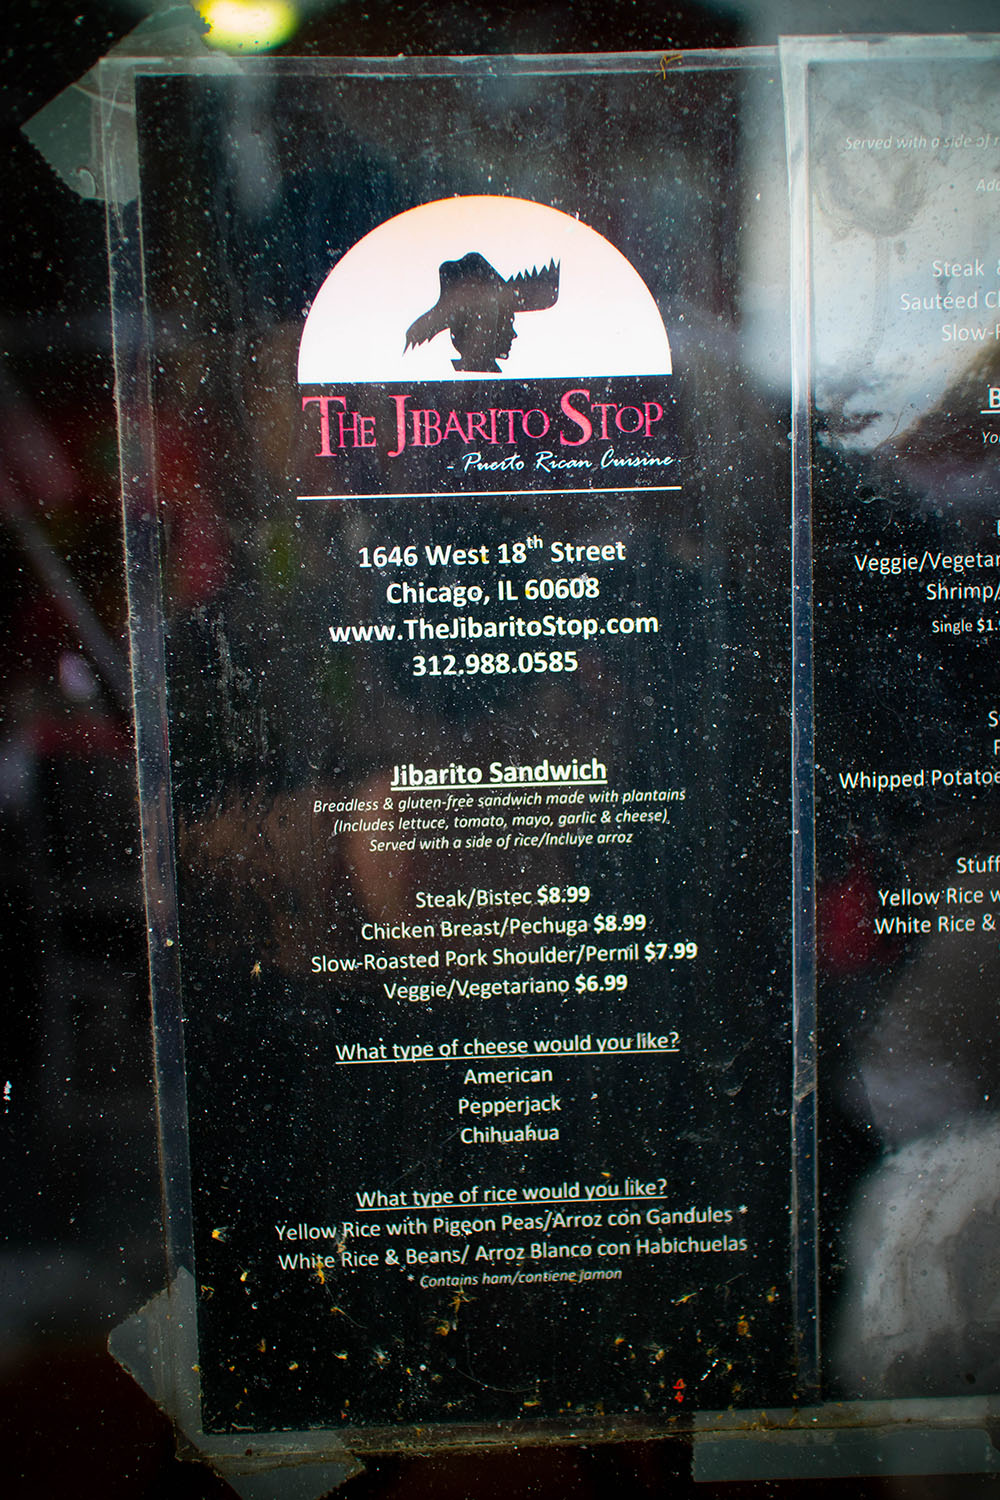 THE JIBARITO STOP
- Puerto Rican Cuisine-
1646 West 18th Street
Chicago, IL 60608
www.TheJibaritoStop.com
312.988.0585
Jibarito Sandwich
Breadless & gluten-free sandwich made with plantains
(Includes lettuce, tomato, mayo, garlic & cheese)
Served with a side of rice/Incluye arroz
Steak/Bistec $8.99
Chicken Breast/Pechuga $8.99
Slow-Roasted Pork Shoulder/Pernil $7.99
Veggie/Vegetariano $6.99
What type of cheese would you like?
American
Pepperjack
Chihuahua
What type of rice would you like?
Yellow Rice with Pigeon Peas/Arroz con Gandules *
White Rice & Beans/ Arroz Blanco con Habichuelas
* Contains ham/contiene jamon
Served with a side of
Steak
Sautéed
Veggie/
Shrimp/
Single $1.
Whipped
Yellow Rice
White Rice &